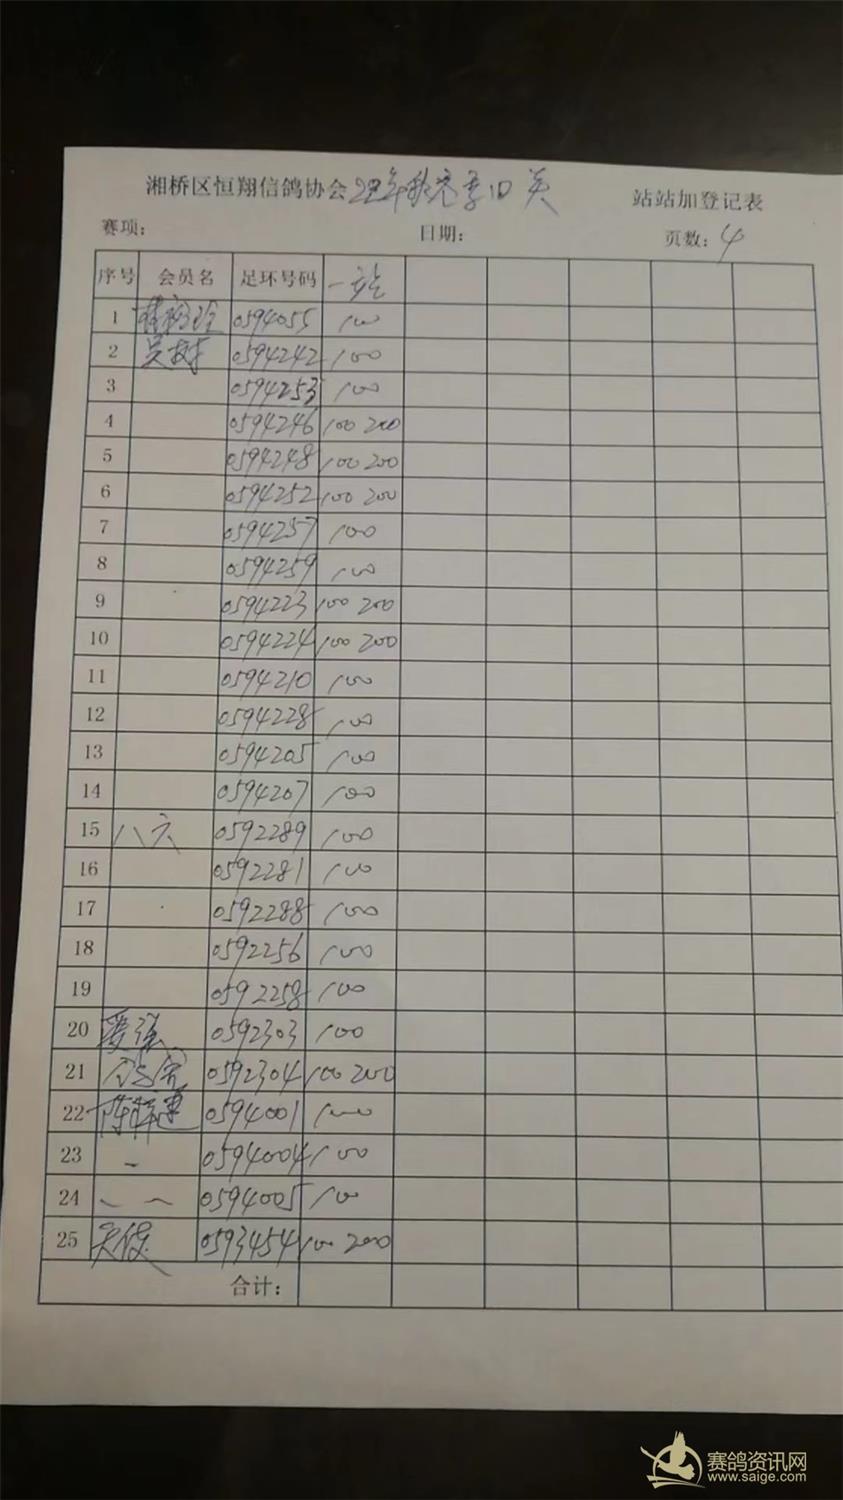 湘桥区恒翔信鸽协会 站站加登记表
赛项: 日期: 页数: 4
序号 会员名 足环号码 一站
1 0594055 100
2 吴树 0594242 100
3 0594253 100
4 0594246 100 200
5 0594248 100 200
6 0594252 100 200
7 0594257 100
8 0594259 100
9 0594223 100 200
10 0594224 100 200
11 0594210 100
12 0594228 100
13 0594205 100
14 0594207 100
15 八六 0592289 100
16 0592281 100
17 0592288 100
18 0592256 100
19 0592258 100
20 0592303 100
21 0592304 100 200
22 0594001 100
23 0594004 100
24 0594005 100
25 0593454 100 200
合计:
赛鸽资讯网
www.saige.com